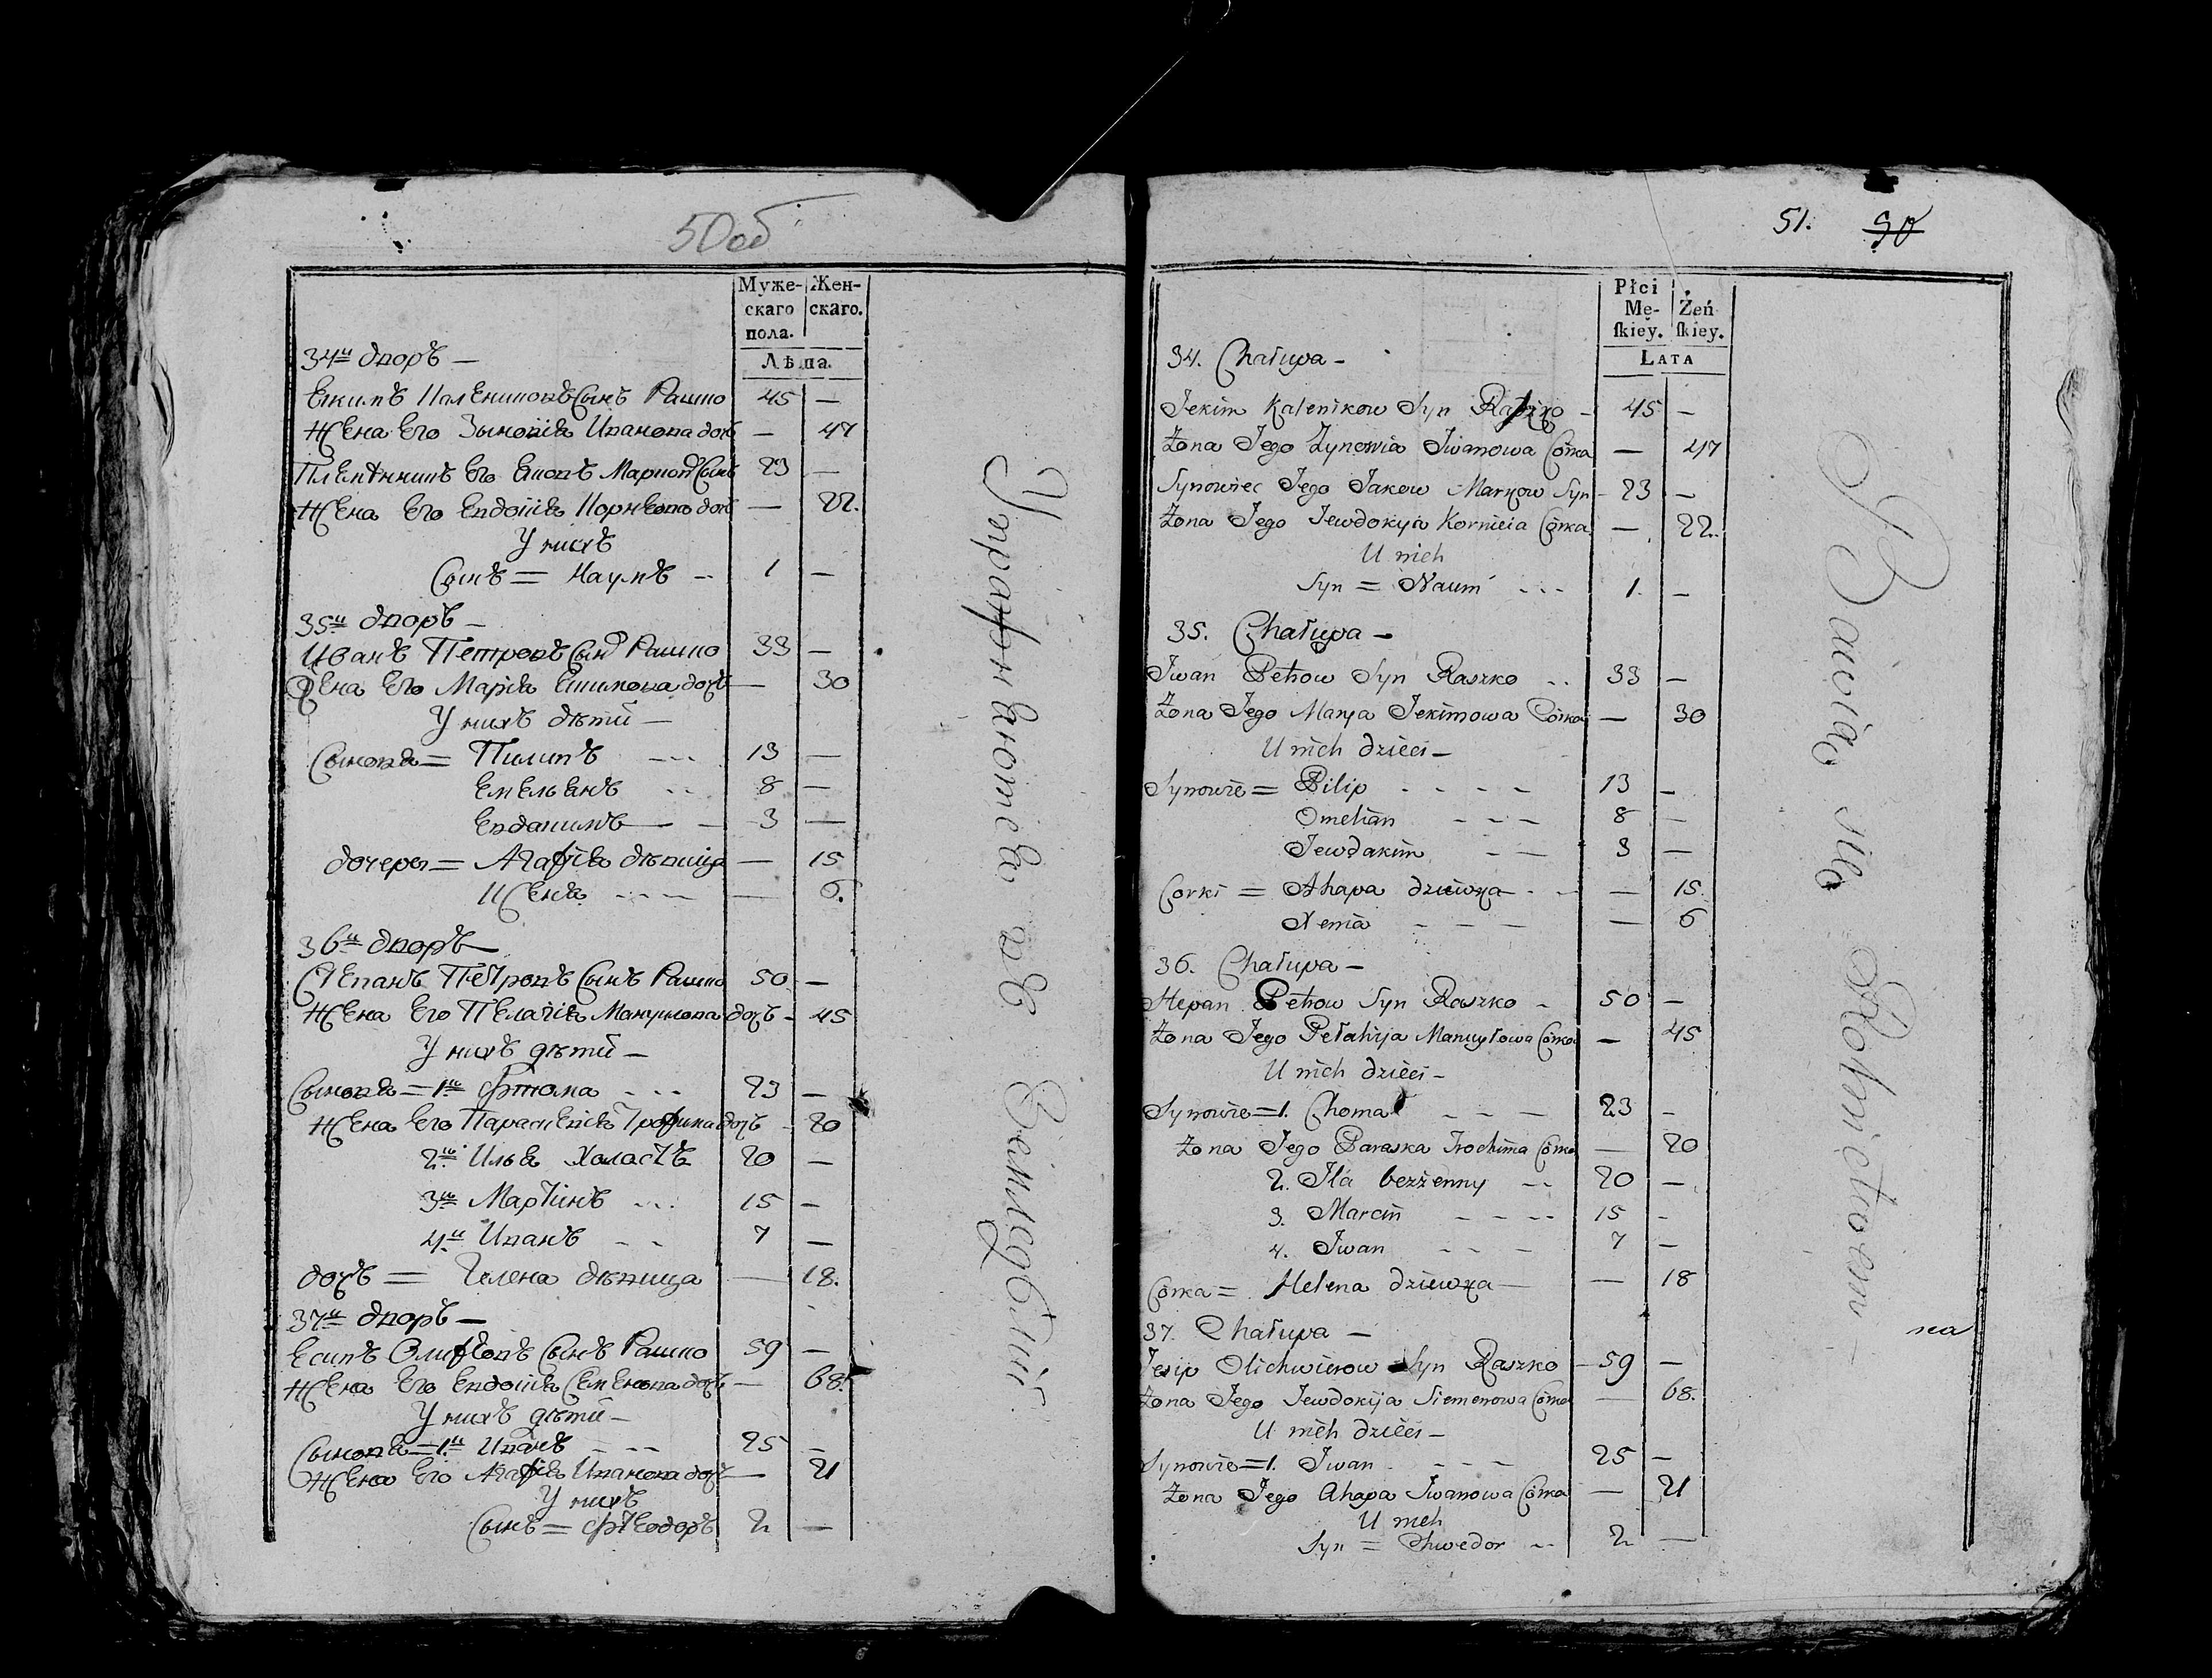 50об
Муже-
скаго
пола.
Жен-
скаго.
Лѣта.
34й дворъ —
Екимъ Калениковъ Сынъ Рашко 45 —
Жена Его Зыновія Иванова дочъ — 47
Племѣнникъ Его Яковъ Марковъ Сынъ 23 —
Жена Его Евдокія Корнѣева дочъ — 22.
У нихъ
Сынъ = Наумъ 1 —
35й дворъ —
Иванъ Петровъ Сынъ Рашко 33 —
Жена Его Марія Екимова дочъ — 30
У нихъ дѣти —
Сыновя = Пилипъ 13 —
Емельянъ 8 —
Евдакимъ 3 —
дочеры = Агафія дѣвица — 15
Ксеня — 6.
36й дворъ —
Степанъ Петровъ Сынъ Рашко 50 —
Жена Его Пелагія Мануилова дочъ — 45
У нихъ дѣти —
Сыновя = 1й Фтома 23 —
Жена Его Параскевія Трофима дочъ — 20
2й Илья Халастъ 20 —
3й Мартинъ 15 —
4й Иванъ 7 —
дочъ = Гелена дѣвица — 18.
37й дворъ —
Есипъ Олифѣовъ Сынъ Рашко 59 —
Жена Его Евдокія Семенова дочъ — 68.
У нихъ дѣти —
Сыновя = 1й Иванъ 25 —
Жена Его Агафія Иванова дочъ — 21
У нихъ
Сынъ = Фтеодоръ 2 —
Упражняются въ Земледѣліи
51. 50
Płci
Mę-
ſkiey.
Żeń
ſkiey.
LATA
34. Chałupa —
Jekim Kalenikow Syn Raszko — 45 —
Żona Jego Zynowia Iwanowa Córka — 47
Synowiec Jego Jakow Markow Syn — 23 —
Żona Jego Jewdokyia Kornieia Córka — 22.
U nich
Syn = Naum 1. —
35. Chałupa —
Iwan Petrow Syn Raszko 33 —
Żona Jego Marya Jekimowa Córka — 30
U nich dzieci —
Synowie = Pilip 13 —
Omelian 8 —
Jewdakim 3 —
Corki = Ahapa dziewka — 15.
Xenia — 6
36. Chałupa —
Stepan Petrow Syn Raszko 50 —
Żona Jego Pełahija Manuyłowa Córka — 45
U nich dzieci —
Synowie = 1. Choma 23 —
Żona Jego Paraska Trochima Córka — 20
2. Ila bezżenny 20 —
3. Marcin 15 —
4. Iwan 7 —
Córka = Helena dziewka — 18
37. Chałupa —
Jesip Olichwierow Syn Raszko — 59 —
Żona Jego Jewdokija Siemenowa Córka — 68.
U nich dzieci —
Synowie = 1. Iwan 25 —
Żona Jego Ahapa Iwanowa Córka — 21
U nich
Syn = Chwedor 2 —
Bawią się Rolnictwem —